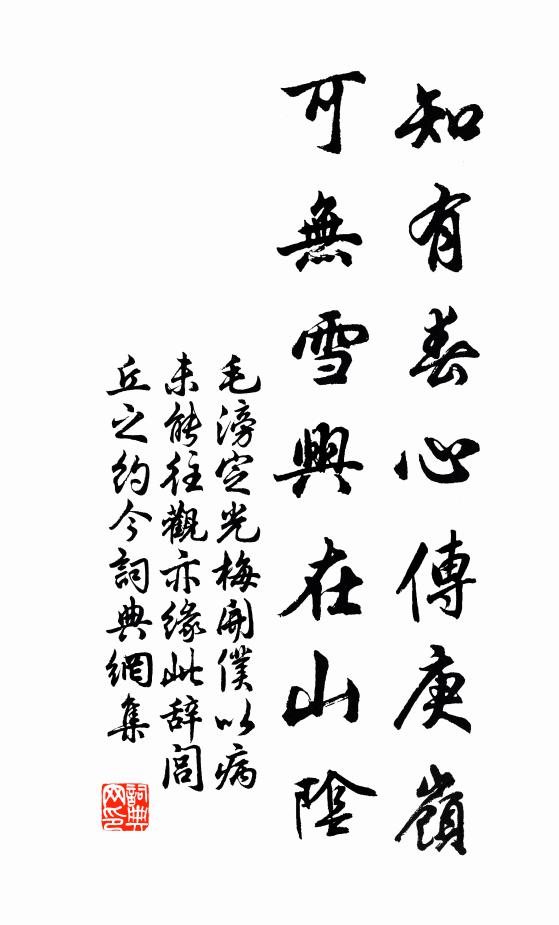 知有春心傳庾嶺
可無雪興在山陰
毛滂定光梅開僕以病
未能往觀亦緣此辞閭
丘之約今詞典網集
詞典
网印